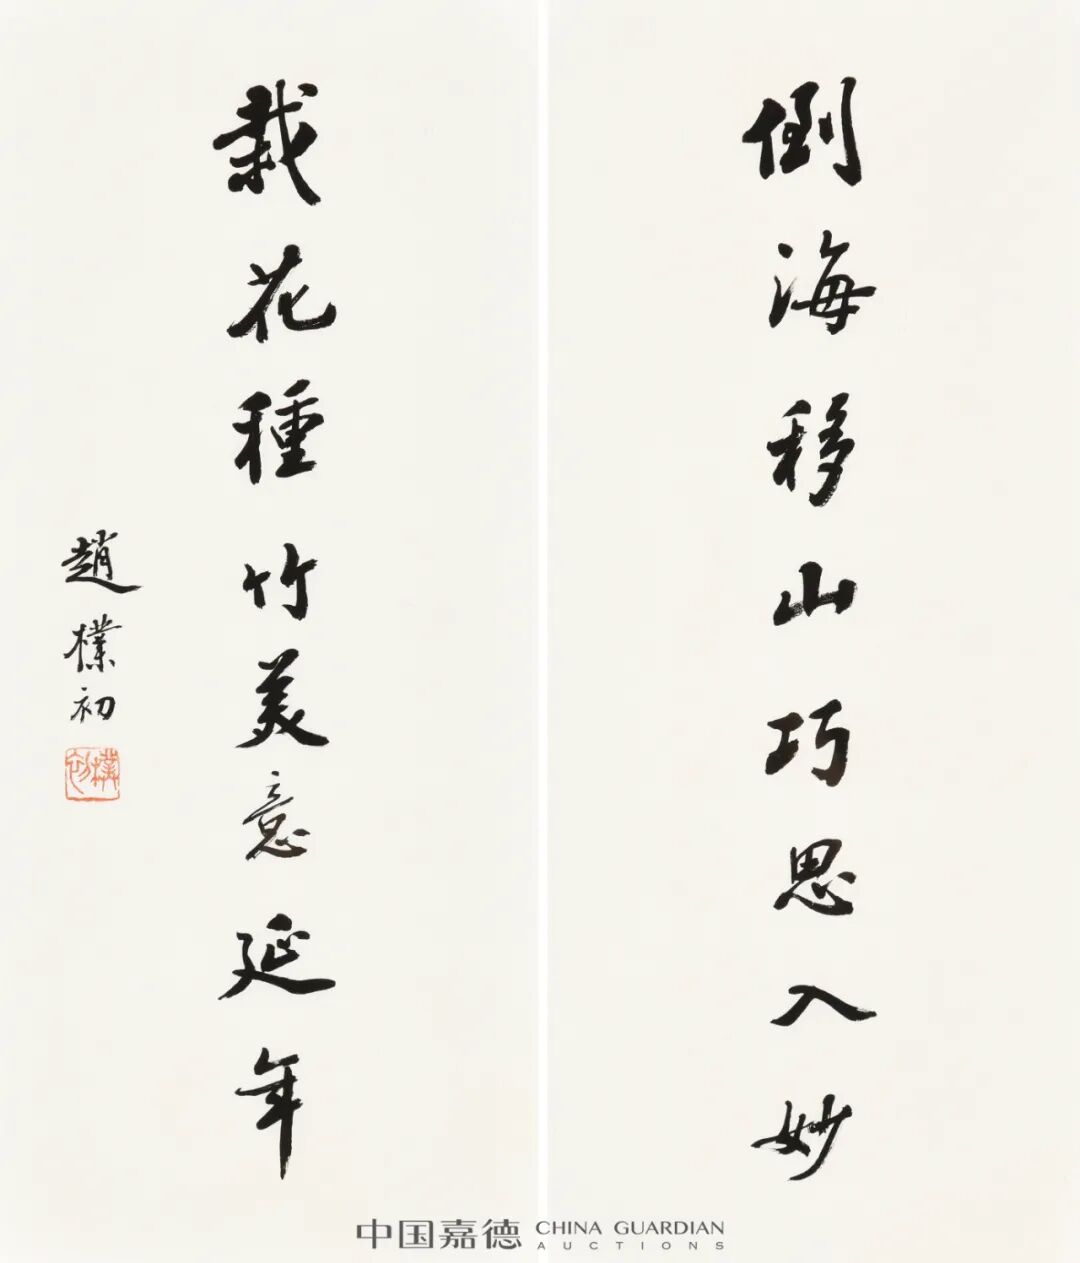 倒海移山巧思入妙
栽花種竹美意延年
趙樸初
樸初
中国嘉德 CHINA GUARDIAN
AUCTIONS